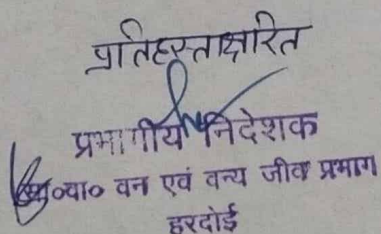 प्रतिहस्ताक्षरित
प्रभागीय निदेशक
०वा० वन एवं वन्य जीव प्रभाग
हरदोई